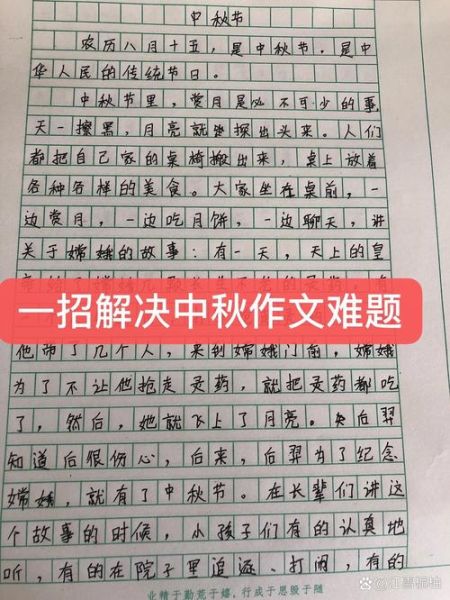 中秋节
农历八月十五，是中秋节，是中
华人民的传统节日。
中秋节里，赏月是必不可少的事，
天一擦黑，月亮就探出头来。人们
都把自己家的桌椅搬出来，桌上放着
各种各样的美食。大家坐在桌前，一
边赏月，一边吃月饼，一边聊天，讲
关于嫦娥的故事：有一天，天上的皇
一招解决中秋作文难题
他带了几个人，来到嫦娥门前，嫦娥
为了不让他抢走灵药，就把灵药都吃
了，然后，她就飞上了月亮。后羿
知道后很伤心，后来，后羿为了纪念
嫦娥，就有了中秋节。在长辈们讲这
个故事的时候，小孩子们有的认真地
听，有的在院子里追逐、打闹，有的
业精于勤荒于嬉，行成于思毁于随